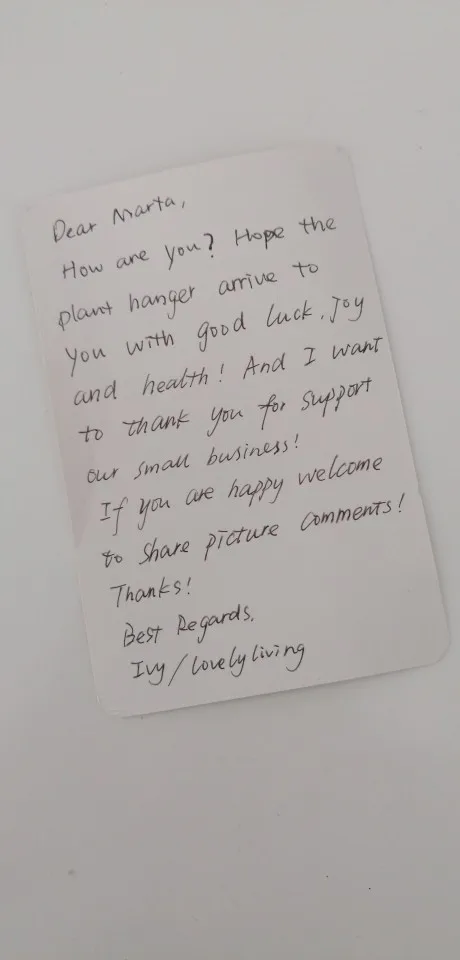 Dear Marta,
How are you? Hope the
plant hanger arrive to
you with good luck, Joy
and health! And I want
to thank you for support
our small business!
If you are happy welcome
to share picture comments!
Thanks!
Best Regards.
Ivy/lovelyliving